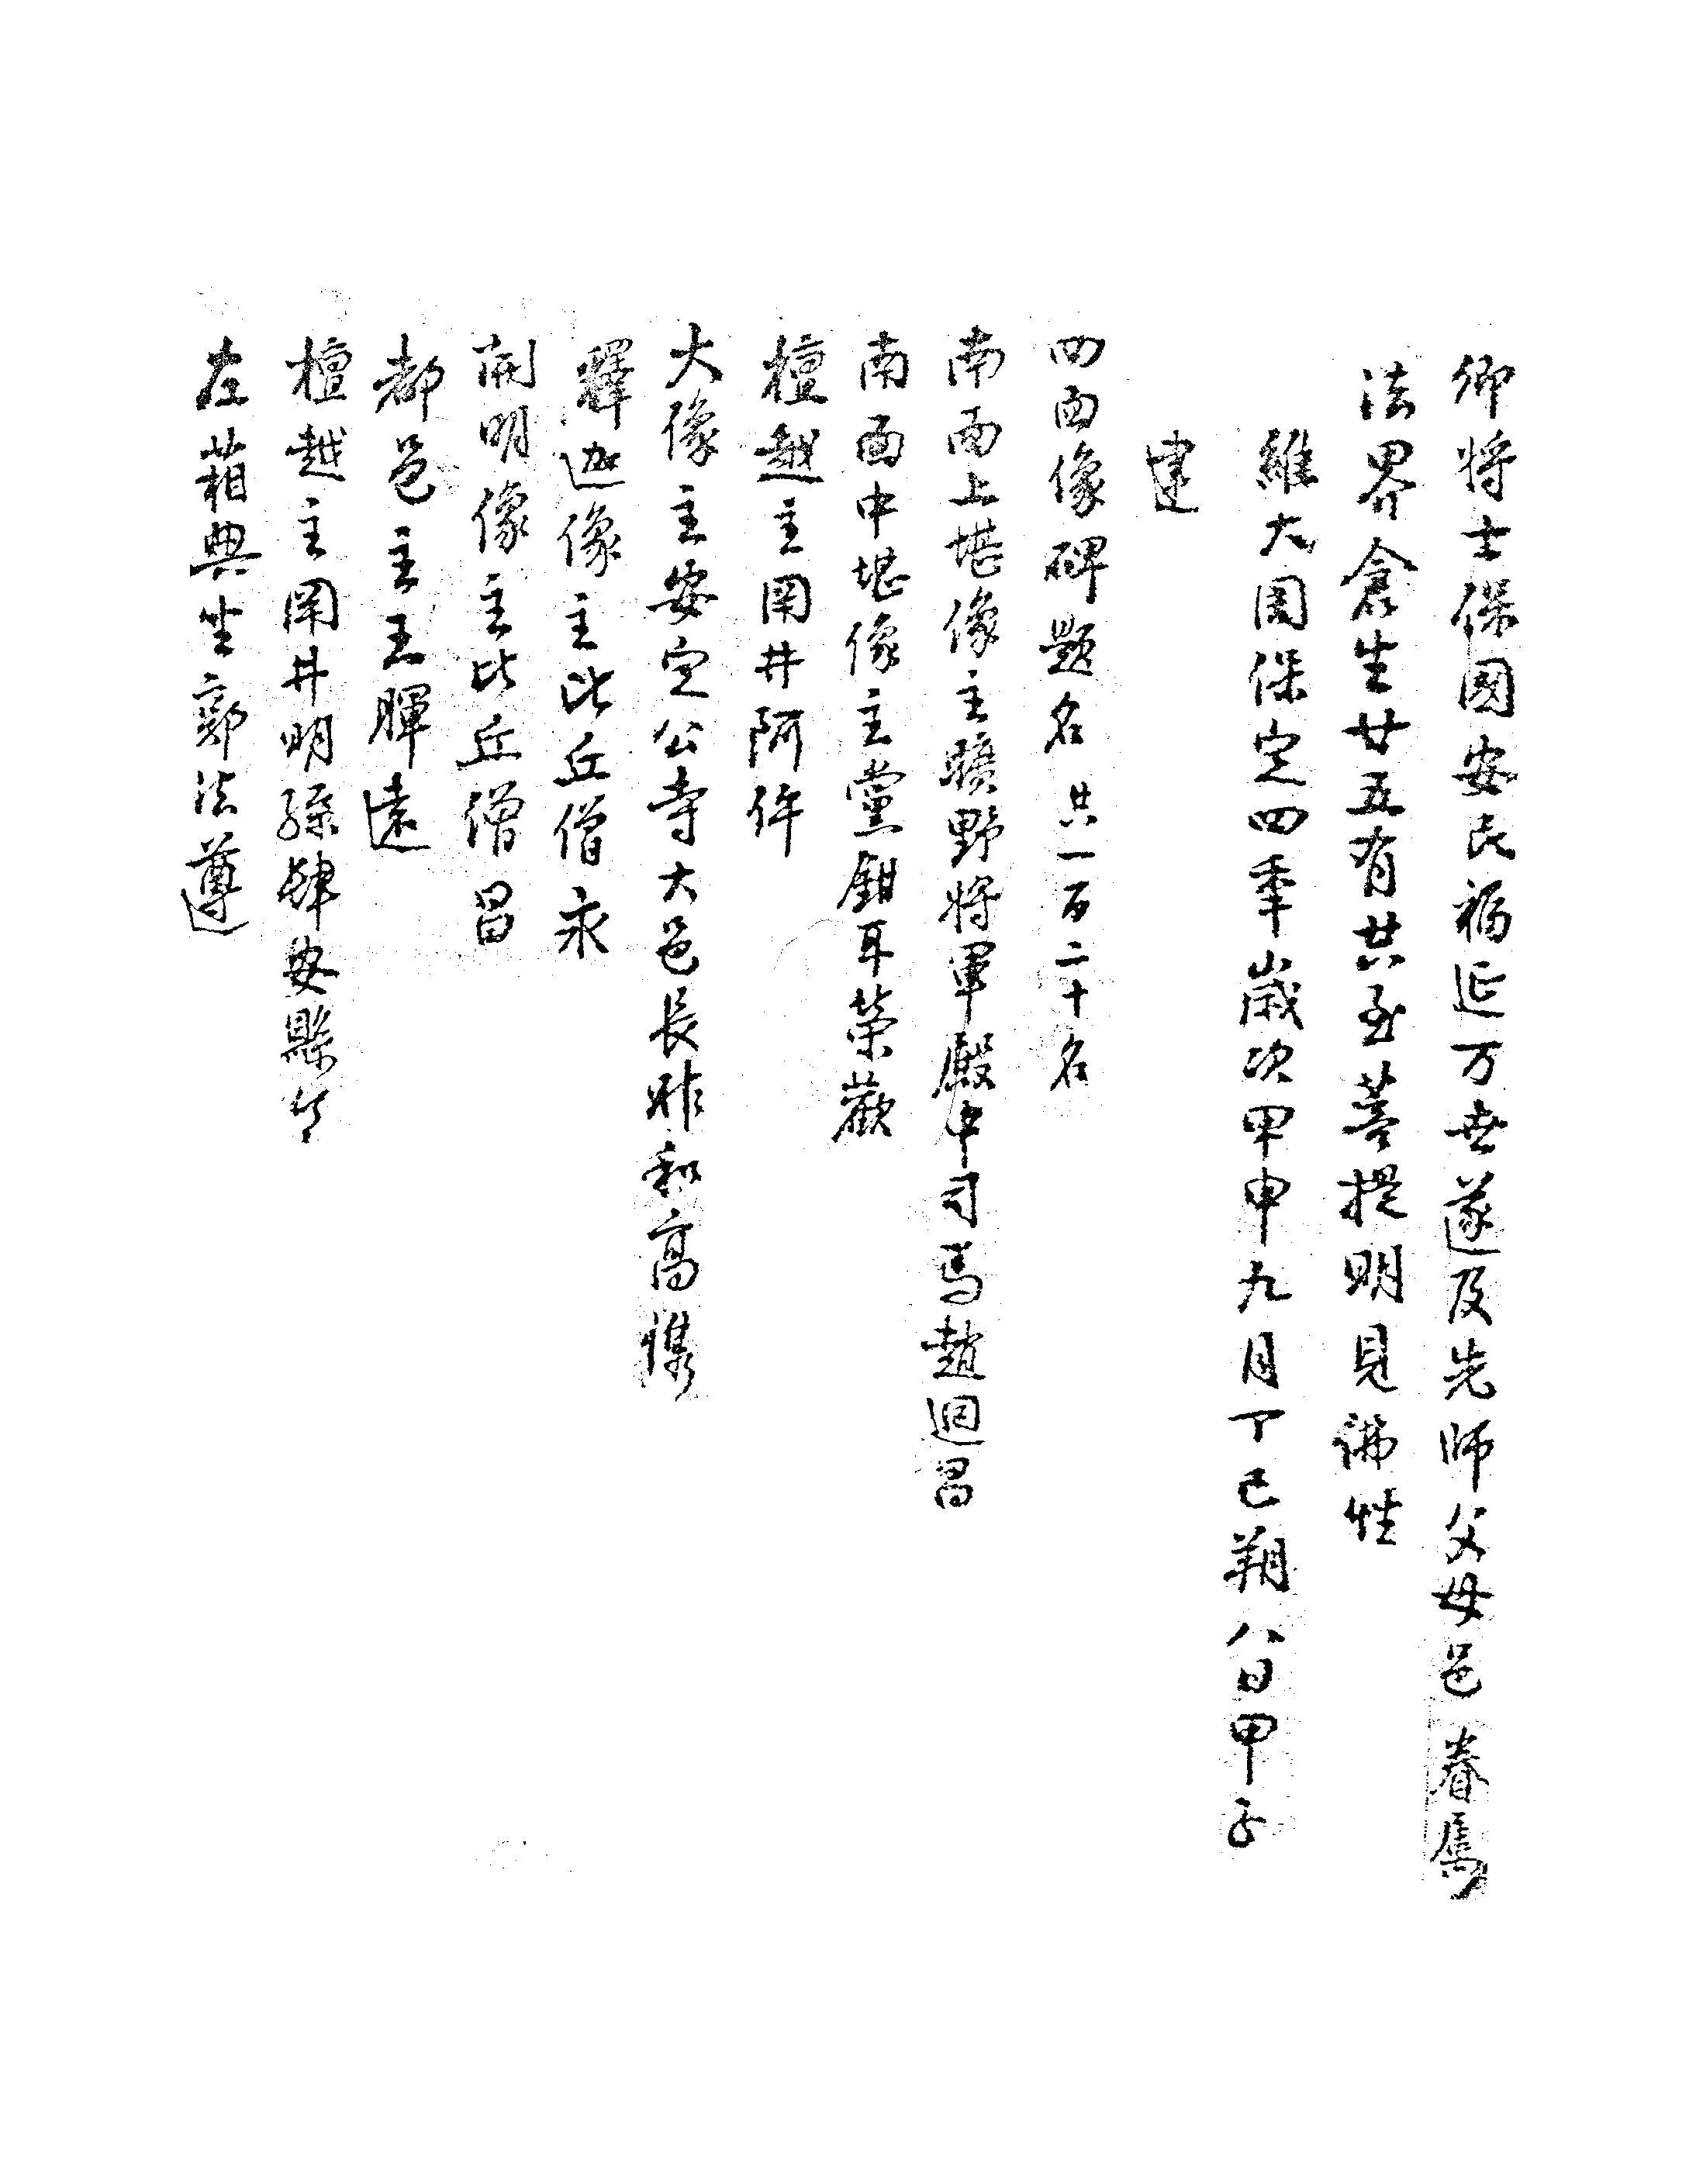 卿將士保國安民福延万世遂及先師父母邑眷
法界倉生廿五有共至菩提明見佛性
維大周保定四年歲次甲申九月丁巳朔八日甲子
建
四面像碑題名 共一百二十名
南面上堪像主曠野將軍殿中司馬趙迴昌
南面中堪像主黨鉗耳榮歡
檀越主罔井阿侔
大像主安定公寺大邑長昨和高
釋迦像主比丘僧永
開明像主比丘僧昌
都邑主王暉遠
檀越主罔井明孫肆安縣令
左葙典坐鄭法遵